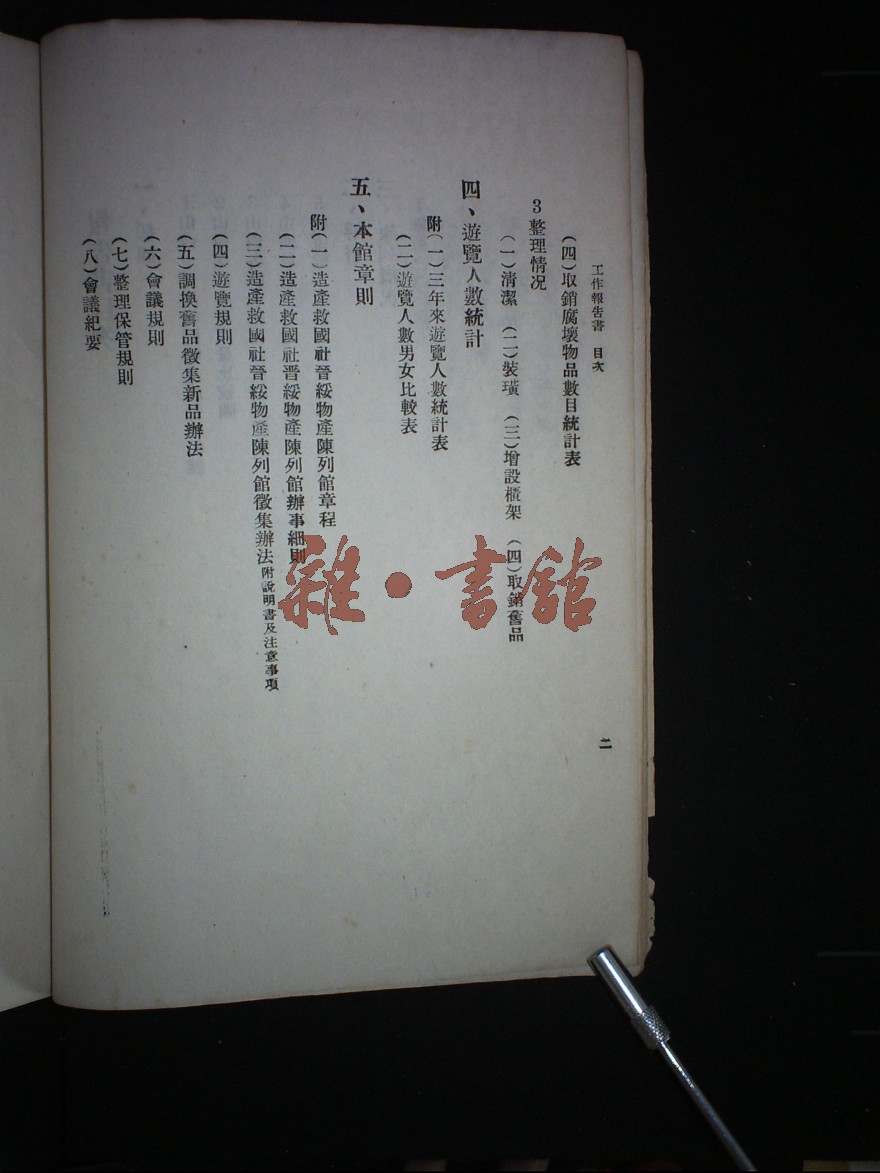 工作報告書　目次
二
（四）取銷腐壞物品數目統計表
3 整理情況
（一）清潔　（二）裝璜　（三）增設櫃架　（四）取銷舊品
四、遊覽人數統計
附（一）三年來遊覽人數統計表
（二）遊覽人數男女比較表
五、本館章則
附（一）造產救國社晉綏物產陳列館章程
（二）造產救國社晉綏物產陳列館辦事細則
（三）造產救國社晉綏物產陳列館徵集辦法附說明書及注意事項
（四）遊覽規則
（五）調換舊品徵集新品辦法
（六）會議規則
（七）整理保管規則
（八）會議紀要
雜·書館